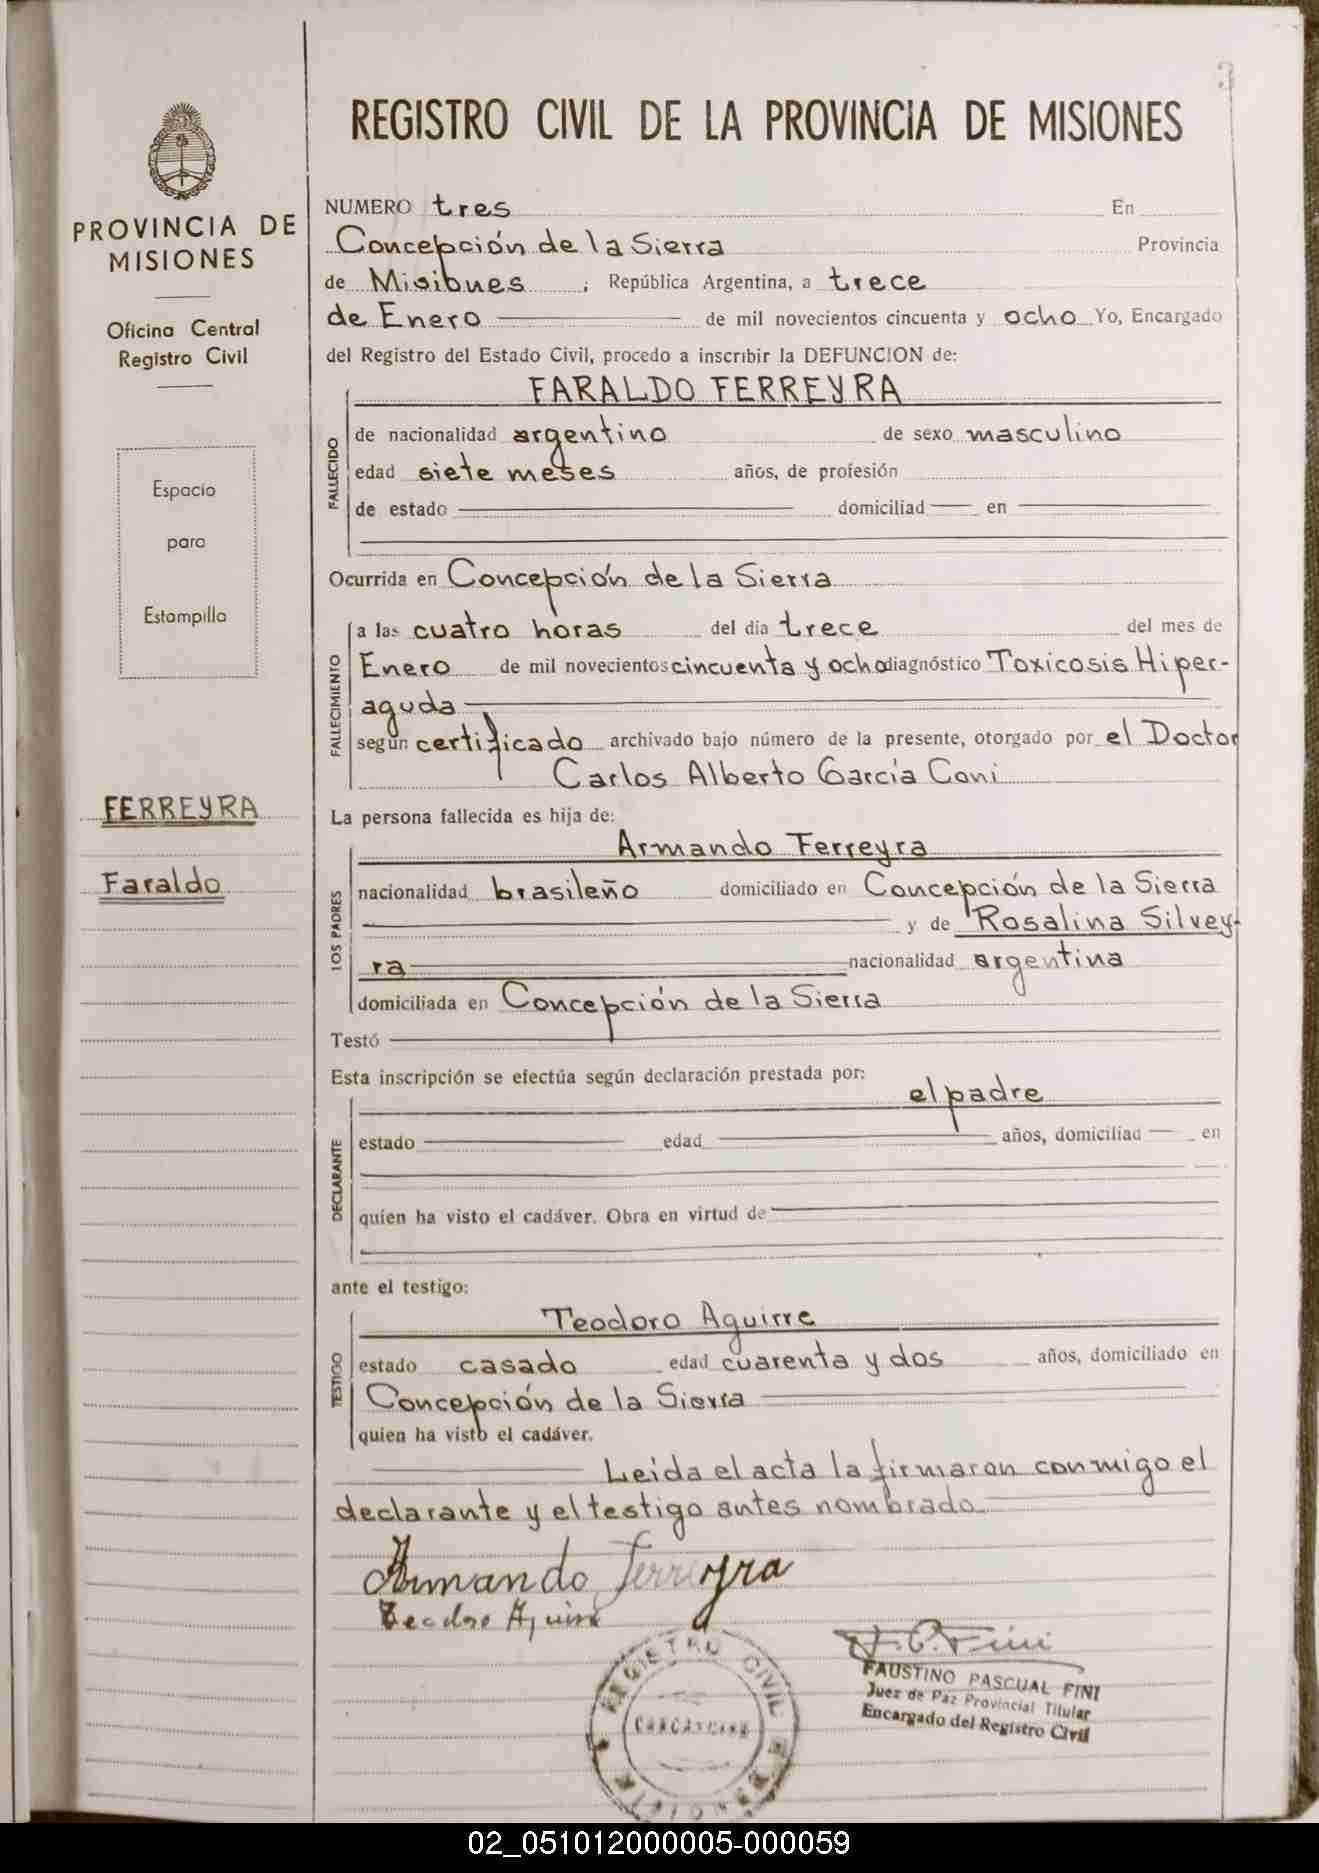 3
REGISTRO CIVIL DE LA PROVINCIA DE MISIONES
PROVINCIA DE
MISIONES
Oficina Central
Registro Civil
Espacio
para
Estampilla
FERREYRA
Faraldo
NUMERO tres En
Concepción de la Sierra Provincia
de Misiones ; República Argentina, a trece
de Enero de mil novecientos cincuenta y ocho Yo, Encargado
del Registro del Estado Civil, procedo a inscribir la DEFUNCION de:
FARALDO FERREYRA
FALLECIDO
de nacionalidad argentino de sexo masculino
edad siete meses años, de profesión
de estado domiciliad en
Ocurrida en Concepción de la Sierra
FALLECIMIENTO
a las cuatro horas del dia trece del mes de
Enero de mil novecientos cincuenta y ocho diagnóstico Toxicosis Hiper-
aguda
según certificado archivado bajo número de la presente, otorgado por el Doctor
Carlos Alberto García Coni
La persona fallecida es hija de:
Armando Ferreyra
LOS PADRES
nacionalidad brasileño domiciliado en Concepción de la Sierra
y de Rosalina Silvey-
ra nacionalidad argentina
domiciliada en Concepción de la Sierra
Testó
Esta inscripción se efectúa según declaración prestada por:
el padre
DECLARANTE
estado edad años, domiciliad en
quien ha visto el cadáver. Obra en virtud de
ante el testigo:
Teodoro Aguirre
TESTIGO
estado casado edad cuarenta y dos años, domiciliado en
Concepción de la Sierra
quien ha visto el cadáver.
Leida el acta la firmaron conmigo el
declarante y el testigo antes nombrado
Armando Ferreyra
Teodoro Aguirre
F. P. Fini
FAUSTINO PASCUAL FINI
Juez de Paz Provincial Titular
Encargado del Registro Civil
REGISTRO CIVIL
02_051012000005-000059